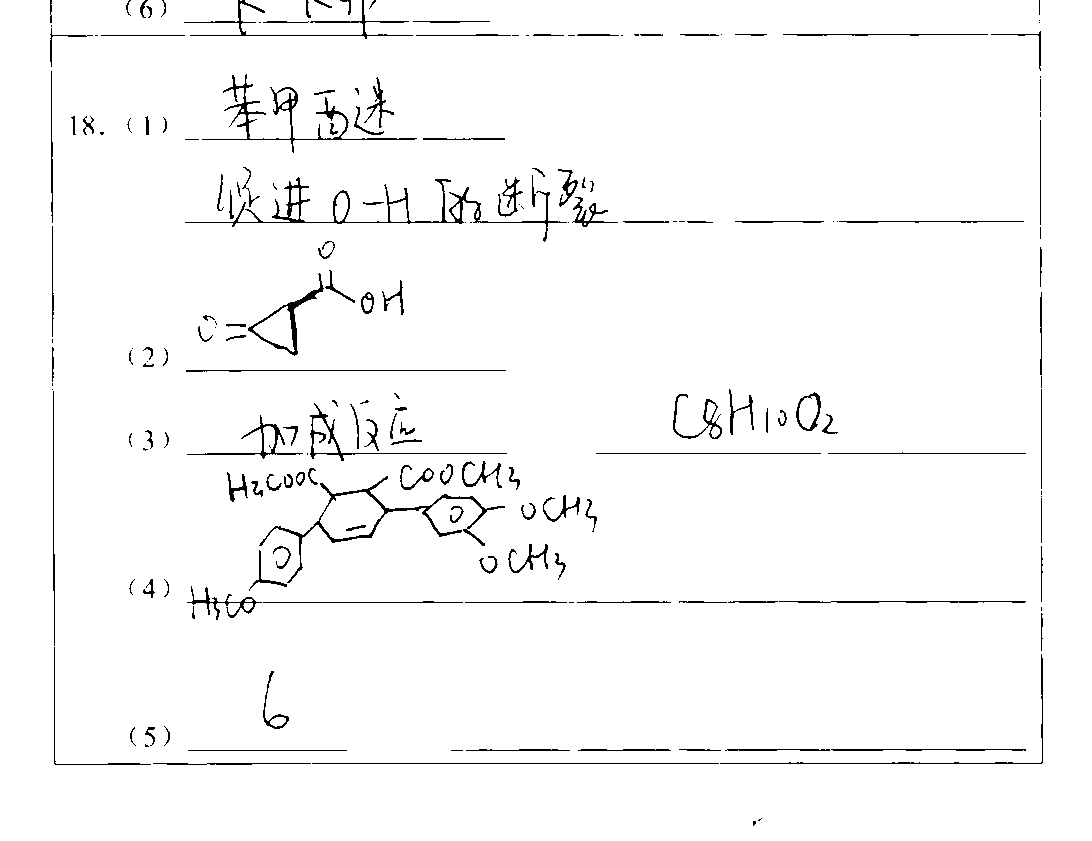 (6)
18. (1) 苯甲醛
促进 O-H 的断裂
O
OH
O=
(2)
(3) 加成反应 C8H10O2
H3COOC COOCH3
OCH3
OCH3
(4) H3CO
6
(5)